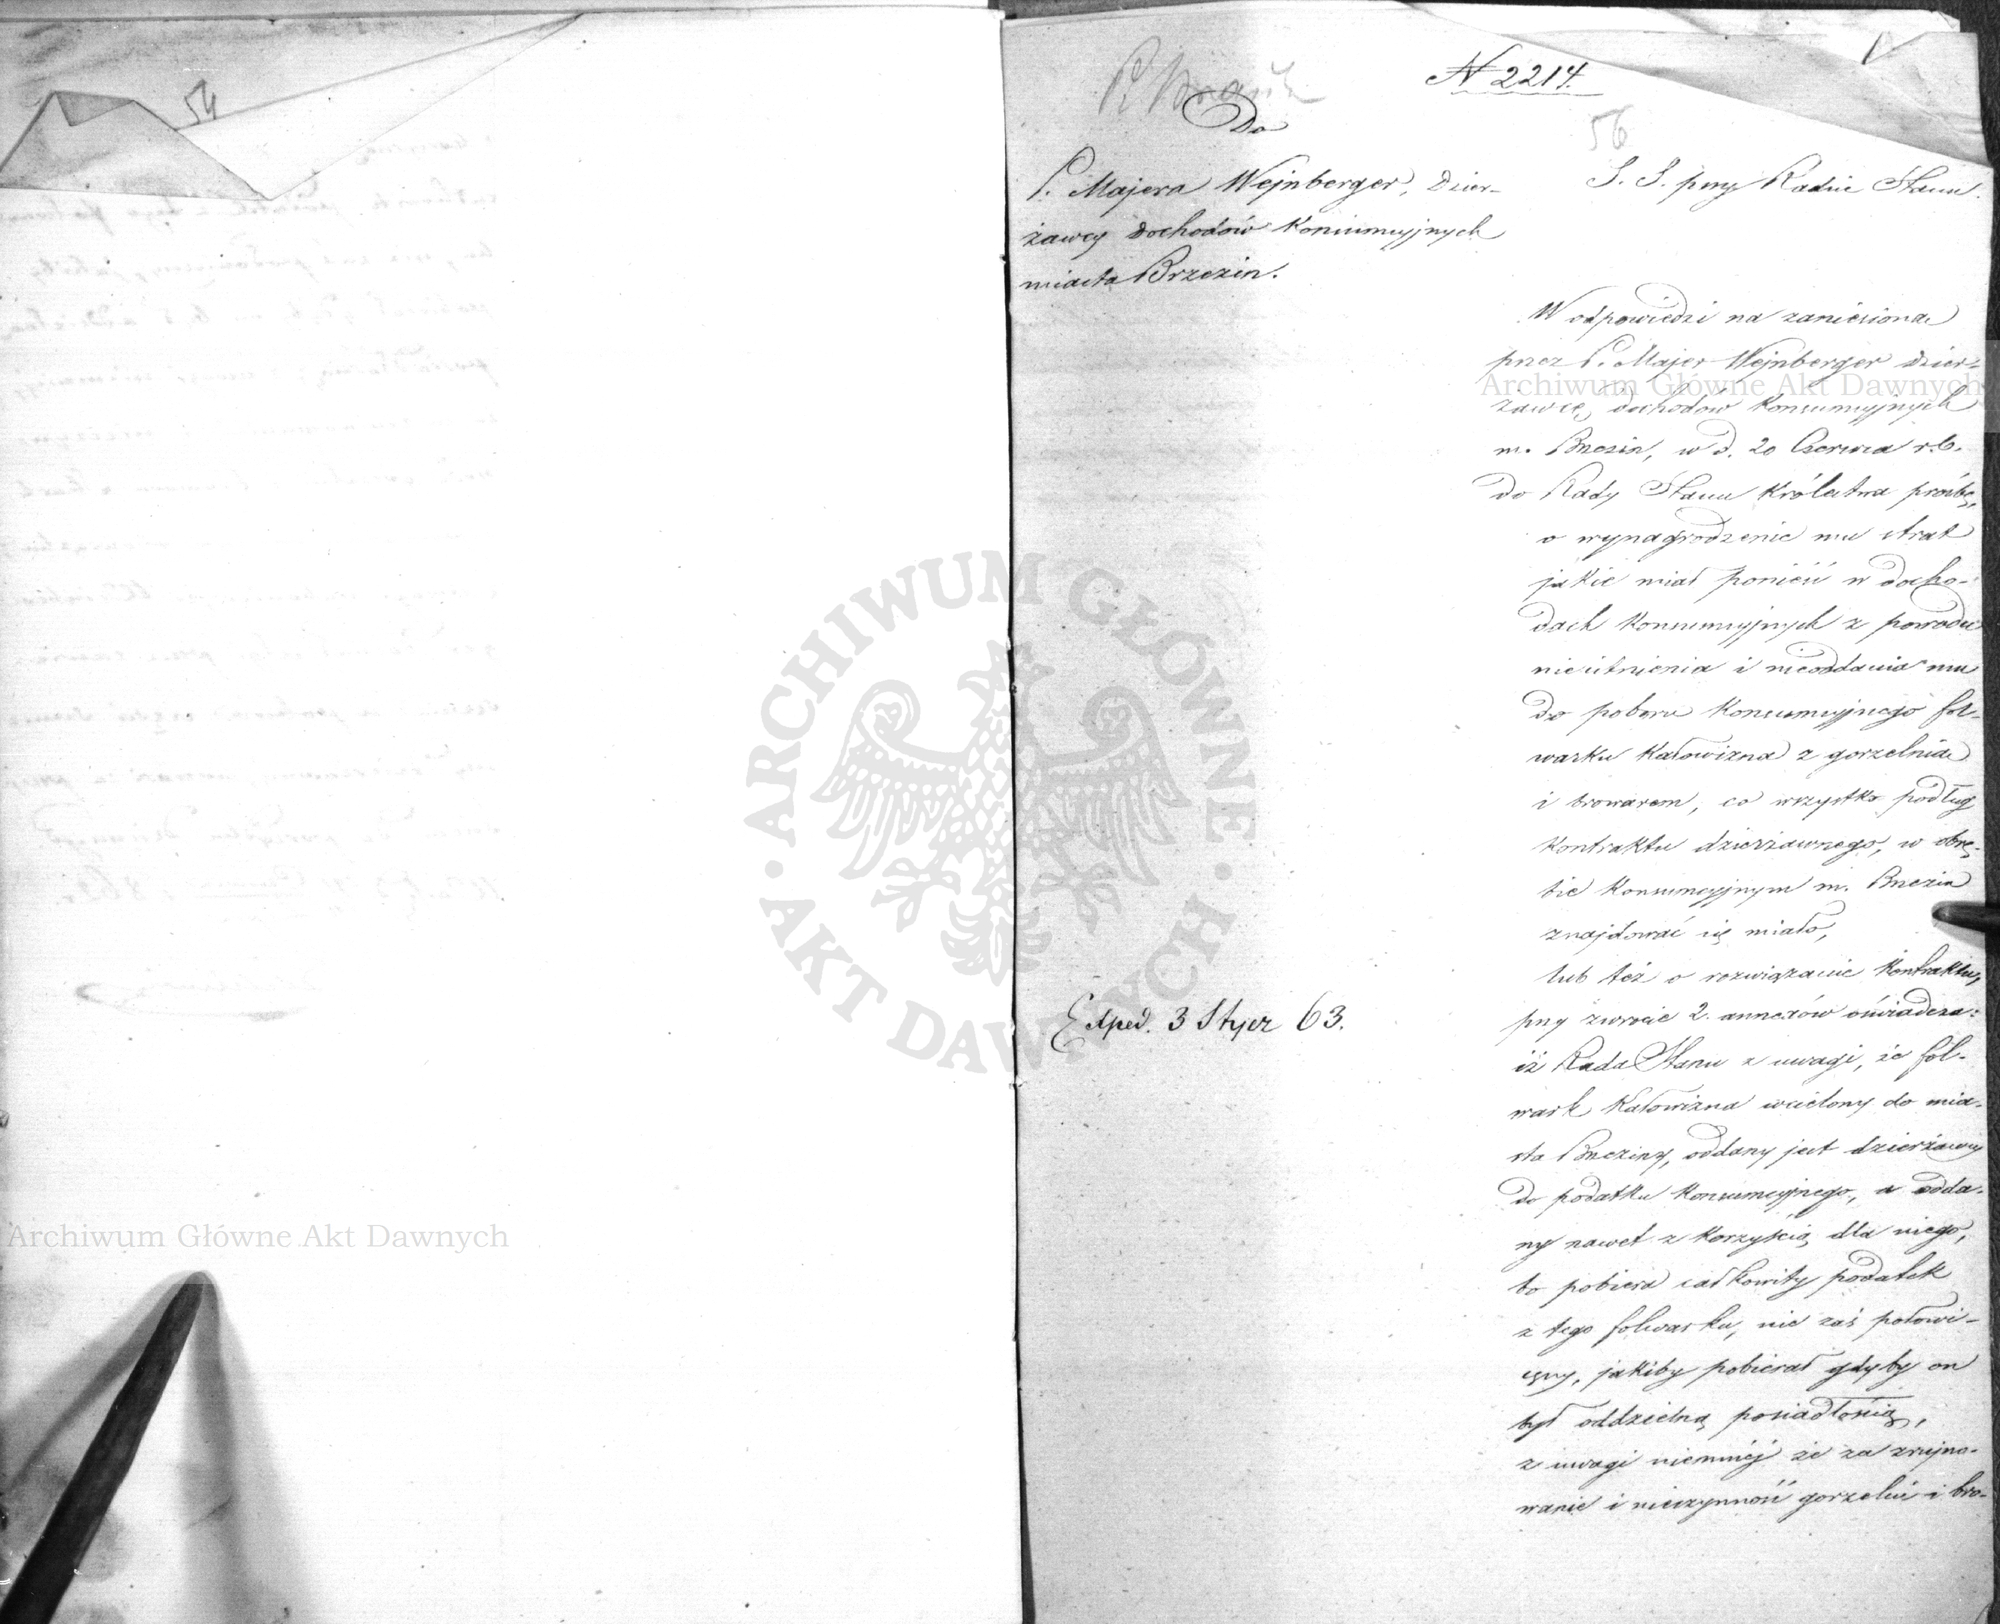 54
N 2214.
56
Do
P. Majera Wejnberger, Dzier-
żawcy dochodów Konsumcyjnych
miasta Brzezin.
S. S. przy Radzie Stanu.
W odpowiedzi na zaniesioną
przez P. Majer Wejnberger dzier-
żawcę dochodów Konsumcyjnych
m. Brzezin, w d. 20 Czerwca r. b.
do Rady Stanu Królestwa prośbę,
o wynagrodzenie mu strat
jakie miał ponieść w docho-
dach Konsumcyjnych z powodu
nieistnienia i nieoddania mu
do poboru Konsumcyjnego fol-
warku Kałowizna z gorzelnią
i browarem, co wszystko podług
Kontraktu dzierżawnego, w obrę-
bie Konsumcyjnym m. Brzezin
znajdować się miało,
lub też o rozwiązanie Kontraktu,
przy zwrocie 2. annexów oświadcza:
iż Rada Stanu z uwagi, że fol-
wark Kałowizna wcielony do mia-
sta Brzeziny, oddany jest dzierżawcy
do podatku Konsumcyjnego, a odda-
ny nawet z korzyścią dla niego,
bo pobiera całkowity podatek
z tego folwarku, nie zaś połowi-
czny, jakiby pobierał gdyby on
był oddzielną posiadłością,
z uwagi niemniéj że za zrujno-
wanie i nieczynność gorzelni i bro-
Exped. 3 Stycz 63.
Archiwum Główne Akt Dawnych
Archiwum Główne Akt Dawnych
ARCHIWUM GŁÓWNE · AKT DAWNYCH ·